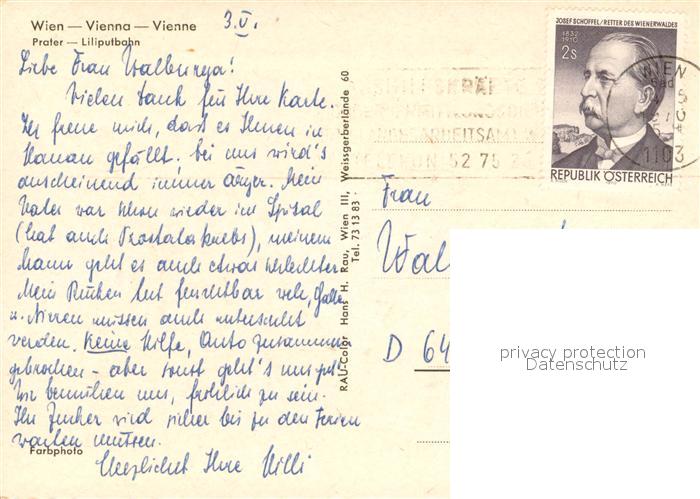 Wien — Vienna — Vienne
Prater — Liliputbahn
3.V.
Liebe Frau Walburga!
Vielen Dank für Ihre Karte.
Ich freue mich, dass es Ihnen in
Hanau gefällt. Bei uns wird's
anscheinend immer ärger. Mein
Vater war schon wieder im Spital
(hat auch Prostatakrebs), meinem
Mann geht es auch etwas schlechter.
Mein Rücken tut furchtbar weh, Galle
u. Nieren müssen auch untersucht
werden. Keine Hilfe, Auto zusammen-
gebrochen – aber sonst geht's uns gut.
Wir bemühen uns, fröhlich zu sein.
Ihr Zucker wird sicher bis zu den Ferien
warten müssen.
Herzlichst Ihre Willi
Farbphoto
RAU-Color Hans H. Rau, Wien III, Weissgerberlände 60
Tel. 73 13 83
JOSEF SCHÖFFEL / RETTER DES WIENERWALDES
1832
1910
2s
REPUBLIK ÖSTERREICH
WIEN
1103
ARBEITSAMT
TELEFON 52 75
Frau
Wal
D 64
privacy protection
Datenschutz